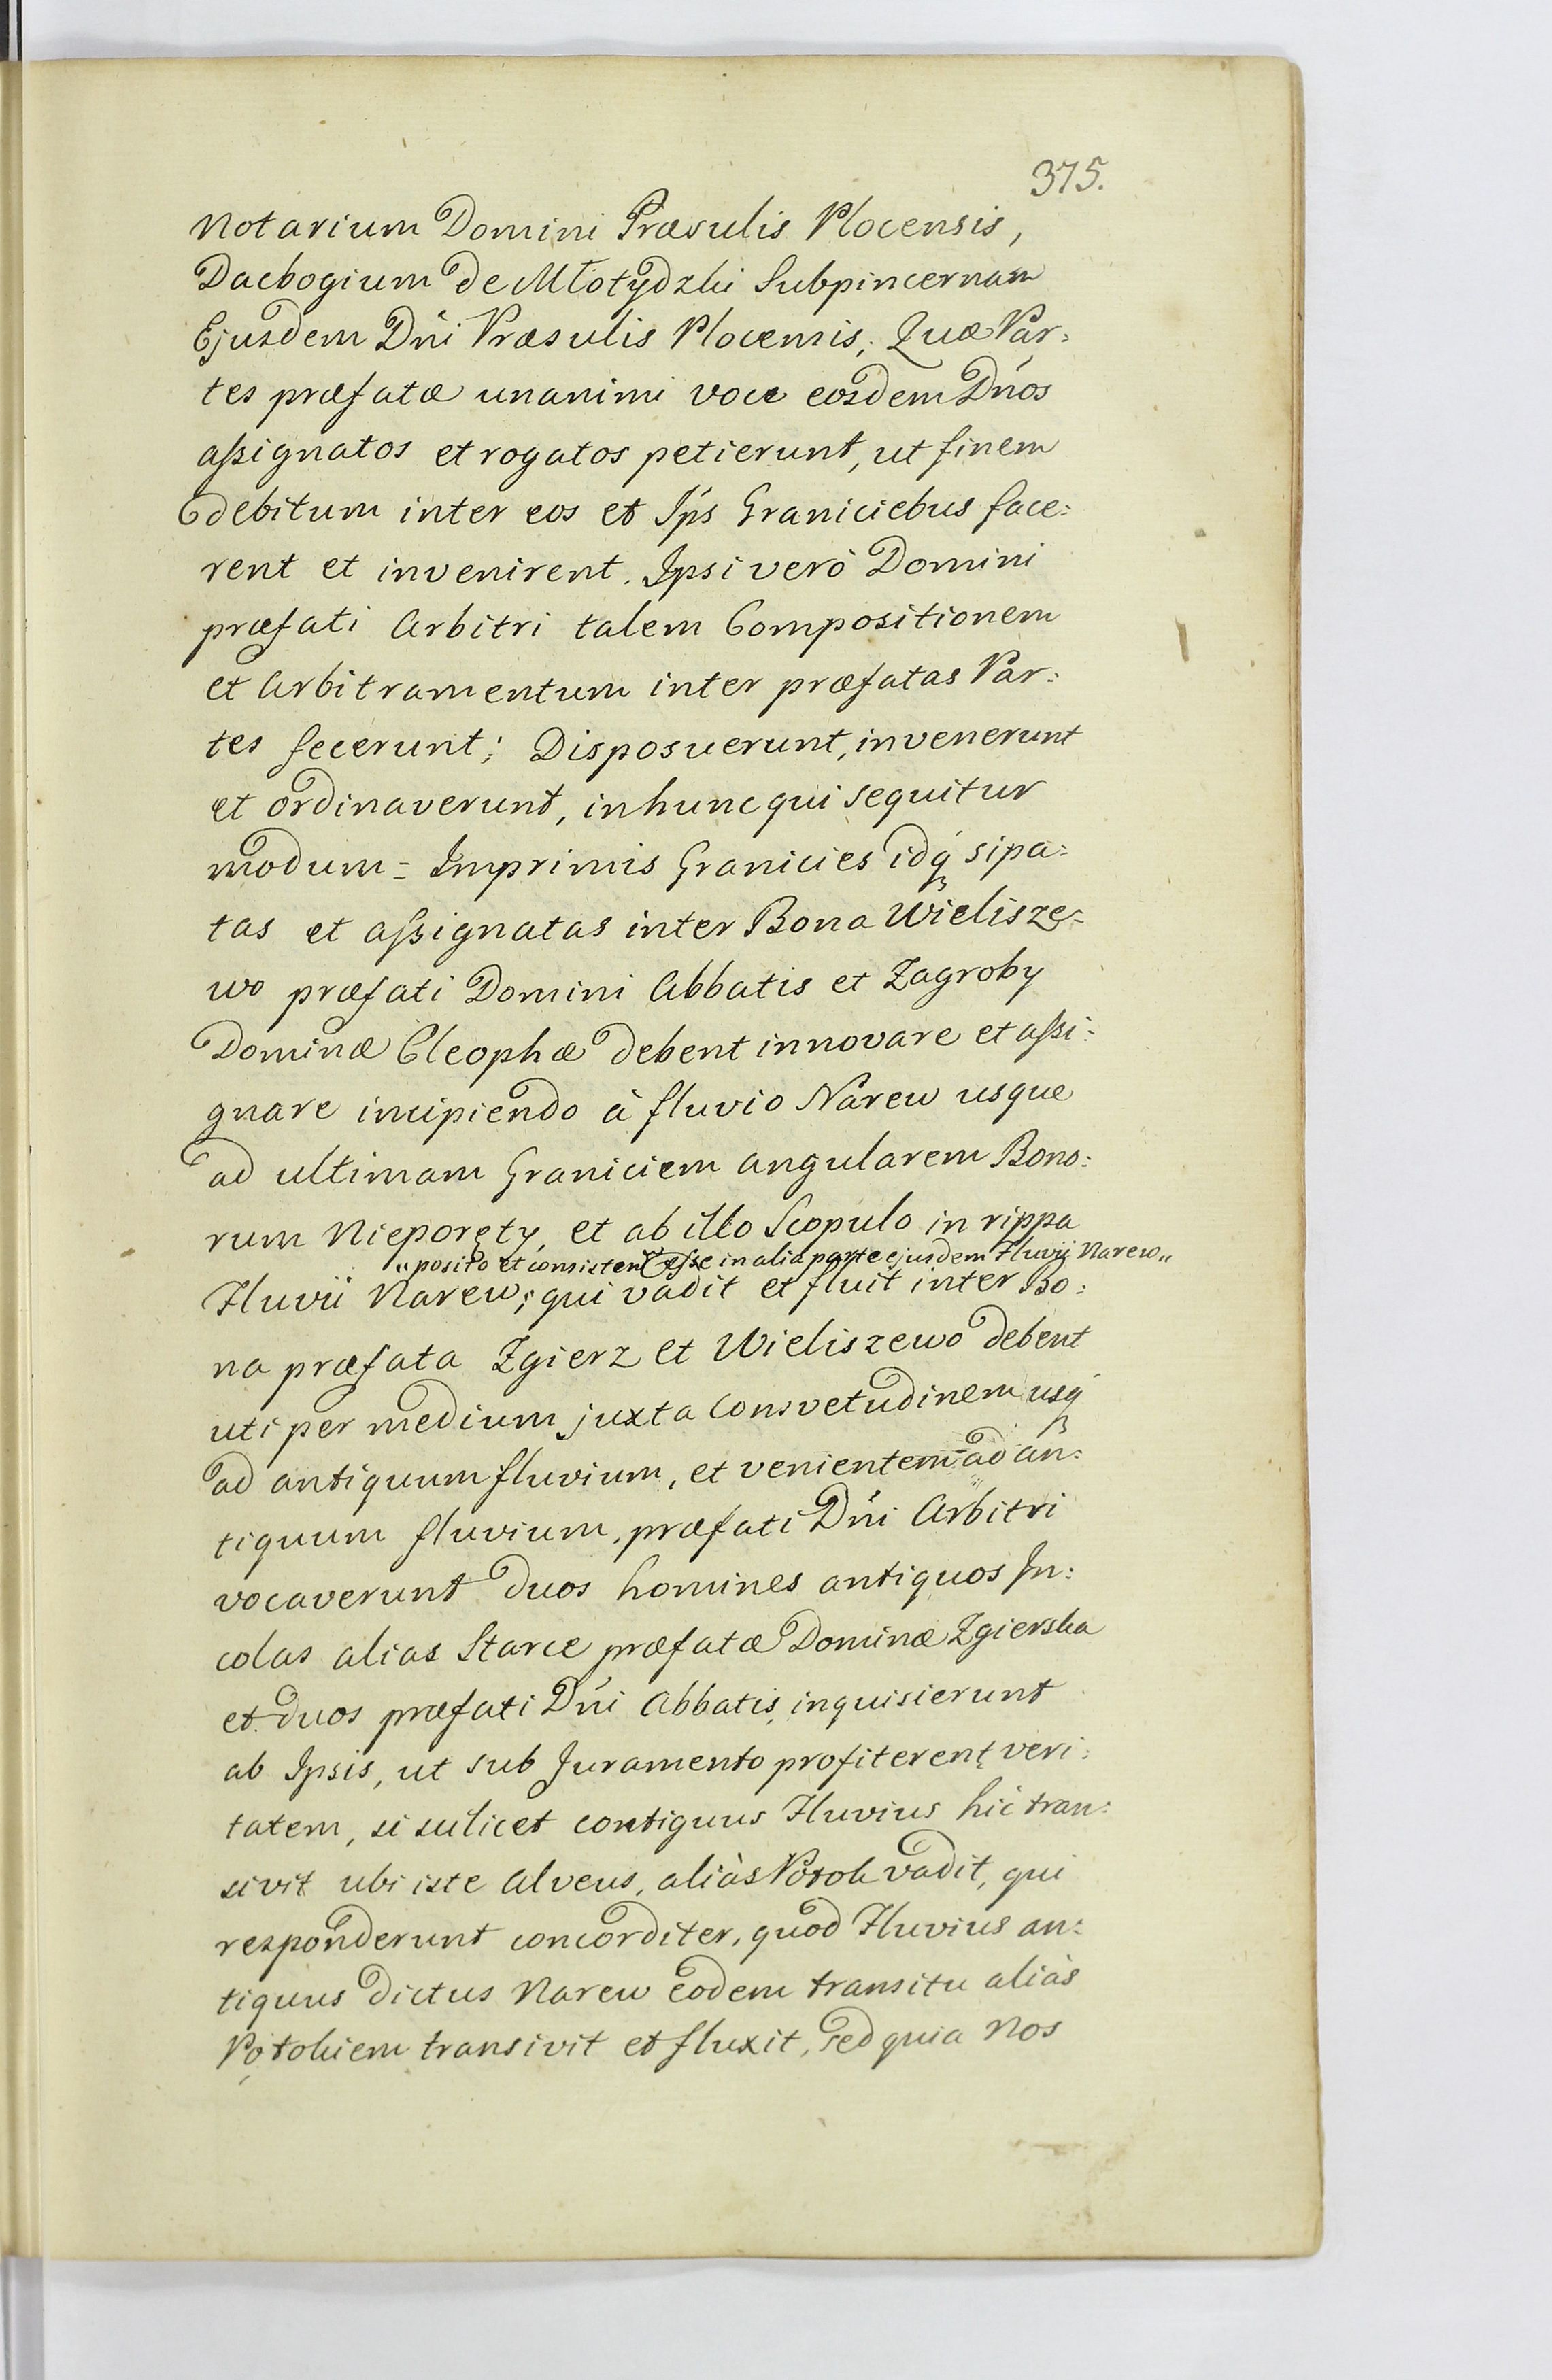 375.
Notarium Domini Præsulis Plocensis,
Dacbogium de Młotydzki Subpincernam
Ejusdem Dńi Præsulis Plocensis; Quæ Par:
tes præfatæ unanimi voce eosdem Dńos
aßignatos et rogatos petierunt, ut finem
debitum inter eos et Ips Graniciebus face:
rent et invenirent. Ipsi verò Domini
præfati Arbitri talem Compositionem
et Arbitramentum inter præfatas Par:
tes fecerunt; Disposuerunt, invenerunt
et ordinaverunt, in hunc qui sequitur
modum = Imprimis Granicies idq́ sipa:
tas et aßignatas inter Bona Wielisze:
wo præfati Domini Abbatis et Zagroby
Dominæ Cleophæ debent innovare et aßi:
gnare incipiendo à fluvio Narew usque
ad ultimam Graniciem angularem Bono:
rum Nieporęty, et ab illo Scopulo in rippa
„posito et consisten esse in alia parte ejusdem Fluvij Narew„
Fluvii Narew; qui vadit et fluit inter Bo:
na præfata Zgierz et Wieliszewo debent
uti per medium juxta Consvetudinem usq́
ad antiquum fluvium, et venientem ad an:
tiquum fluvium, præfati Dńi Arbitri
vocaverunt duos homines antiquos In:
colas alias Starce præfatæ Dominæ Zgierska
et duos præfati Dńi Abbatis, inquisierunt
ab Ipsis, ut sub Juramento profiterent veri:
tatem, si scilicet contiguus Fluvius hic tran:
sivit ubi iste Alveus, aliàs Potok vadit, qui
responderunt concorditer, quod Fluvius an:
tiquus dictus Narew eodem transitu aliàs
Potokiem transivit et fluxit, sed quia Nos